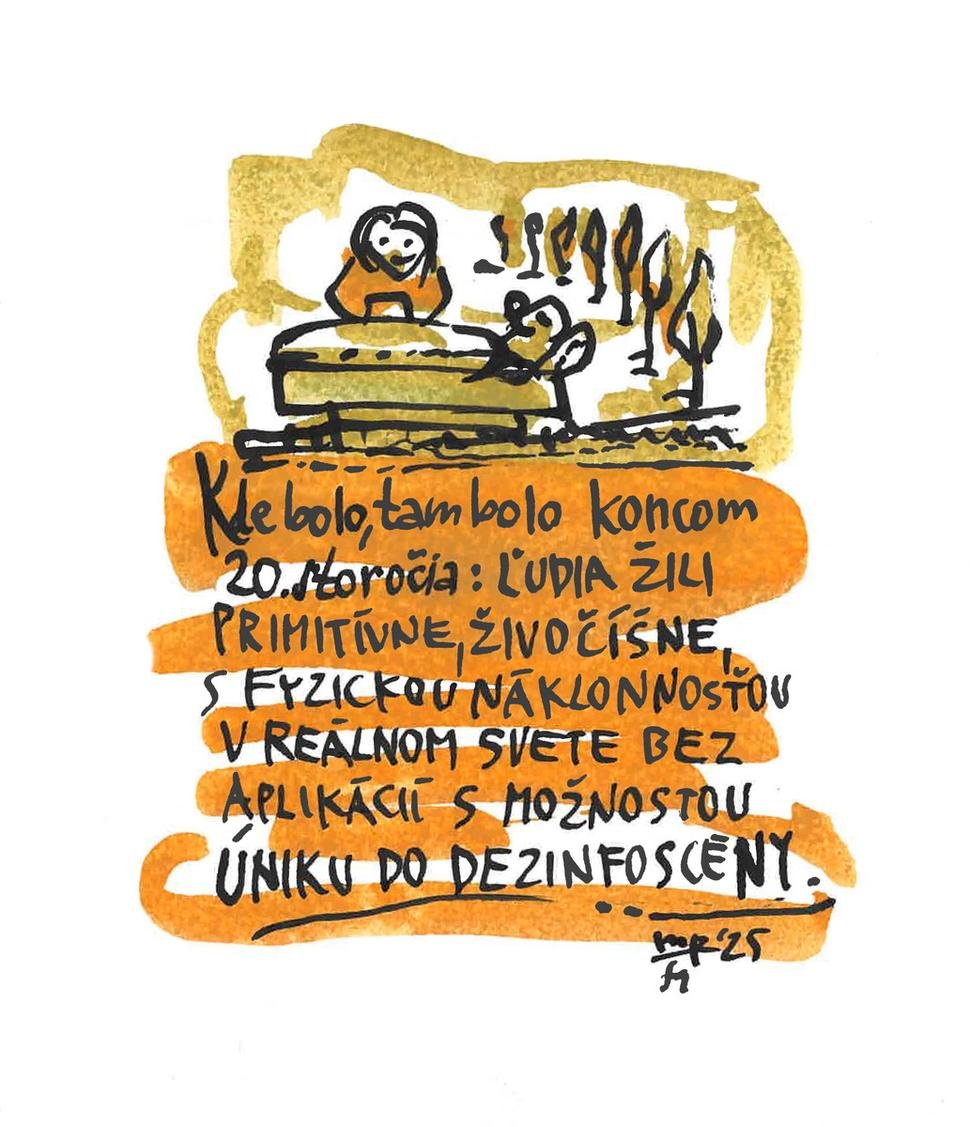 Kde bolo, tam bolo koncom
20. storočia: ĽUDIA ŽILI
PRIMITÍVNE, ŽIVOČÍŠNE,
S FYZICKOU NÁKLONNOSŤOU
V REÁLNOM SVETE BEZ
APLIKÁCIÍ S MOŽNOSTOU
ÚNIKU DO DEZINFOSCÉNY.
'25